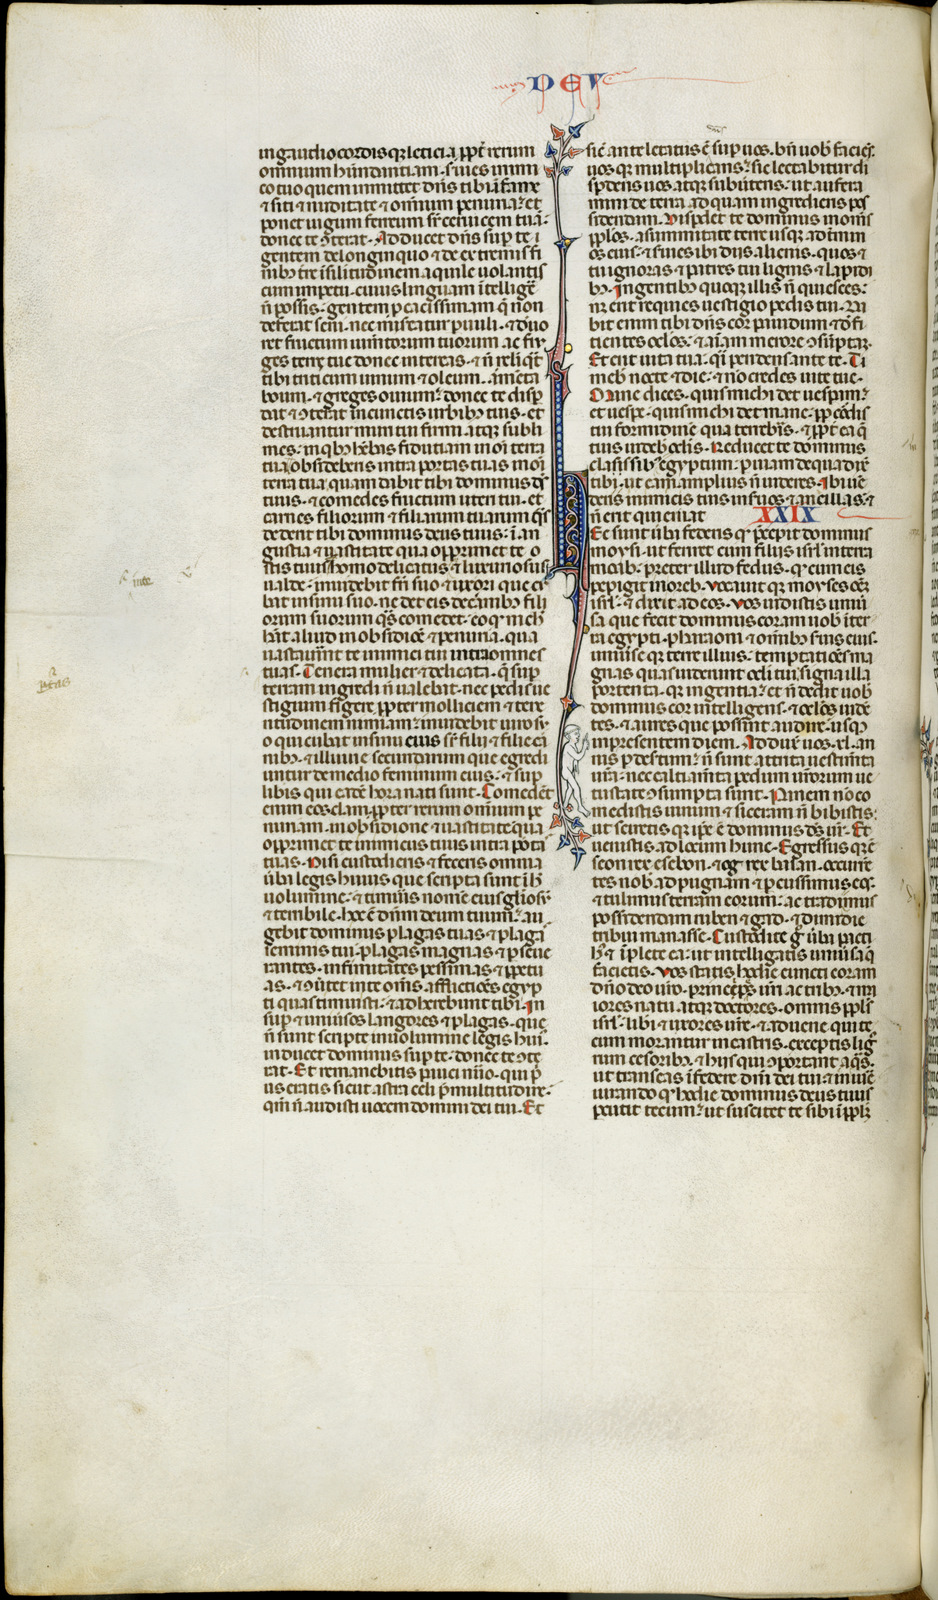 DEV
in gaudio cordis q; leticia ꝓpt̄ rerum
omnium habundantiam · seruies inimi
co tuo quem inmittet dn̄s tibi ī fame
⁊ siti ⁊ nuditate ⁊ omnium penuria ⁊ et
ponet iugum ferreum sr̄ ceruicem tuā ·
donec te ꝯterat · Adducet dn̄s sup̄ te
gentem de longinquo ⁊ de extremis fi
nibꝰ tr̄e ī similitudinem aquile uolantis
cum impetu · cuius linguam ītelligē
n̄ possis · gentem ꝓcacissimam q̄ non
deferat seni · nec misereatur paruuli · ⁊ deuo
ret fructum iumentorum tuorum ac fru
ges terre tue donec intereas · ⁊ n̄ relīqt
tibi triticum uinum ⁊ oleum · armēta
boum · ⁊ greges ouium · donec te disꝑ
dat ⁊ ꝯterat in cunctis urbibꝰ tuis · et
destruantur muri tui firmi atq; subli
mes · in qbꝰ hēbas fiduciam in om̄i terra
tua obsidebens intra portas tuas in om̄i
terra tua quam dabit tibi dominus ds̄
tuus · ⁊ comedes fructum uteri tui · et
carnes filiorum ⁊ filiarum tuarum q̄s
dederit tibi dominus deus tuus · ī an
gustia ⁊ uastitate qua opprimet te o
stis tuus homo delicatus ⁊ luxuriosus
ualde · inuidebit fr̄i suo ⁊ uxori que cu
bat in sinu suo · ne det eis de carnibꝰ fili
orum suorum q̄s comedet · eo q̄ nich̄
hāt aliud in obsidiōe ⁊ penuria · qua
uastauerint te inimici tui intra omnes
tuas · Tenera mulier ⁊ delicata · q̄ sup̄
terram ingredi n̄ ualebat · nec pedis ue
stigium figere ꝓpter molliciem ⁊ tene
ritudinem nimiam · inuidebit uiro su
o qui cubat in sinu eius sr̄ filii ⁊ filie ca
nibꝰ · ⁊ illuuie secundarum que egredi
untur de medio feminum eius · ⁊ sup̄
liberis qui eadē hora nati sunt · Comedēt
enim eos clam · ꝓpter rerum omnium pe
nuriam · in obsidione ⁊ uastitate qua
opprimet te inimicus tuus intra porta
tuas · Nisi custodieris ⁊ feceris omnia
ūba legis huius que scripta sunt ī h̄
uolumine · ⁊ timueris nom̄ eius gliosū
⁊ terribile · hoc ē dn̄m deum tuum · au
gebit dominus plagas tuas ⁊ plaga
seminis tui · plagas magnas ⁊ ꝑseue
rantes · infirmitates pessimas ⁊ ꝑpetu
as · ⁊ ꝯūtet in te om̄s afflictiōes egyp
ti quas timuisti · ⁊ adherebunt tibi · In
sup̄ ⁊ uniuersos langores ⁊ plagas · que
n̄ sunt scripte in uolumine legis huī ·
inducet dominus sup̄ te · donec te ꝯte
rat · Et remanebitis pauci nūo · qui p̄
us eratis sicut astra celi p̄ multitudine ·
qm̄ n̄ audisti uocem domini dei tui · Et
sic̄ ante letatus ē sup̄ uos · bn̄ uob̄ faciēs ·
uosq; multiplicans · sic letabitur di
sꝑdens uos atq; subūtens · ut aufera
mini de terra ad quam ingrediens pos
sidendam · Disꝑdet te dominus in om̄s
pp̄los · a summitate terre usq; ad t̄min
os eius · ⁊ seruies ibi diis alienis · quos ⁊
tu ignoras ⁊ patres tui lignis ⁊ lapidi
bꝰ · In gentibꝰ quoq; illis n̄ quiesces ·
n̄ erit requies uestigio pedis tui · Da
bit enim tibi dn̄s cor pauidum ⁊ d̄fi
cientes ocl̄os · ⁊ aīam merore ꝯsūptā ·
Et erit uita tua · q̄i pendens ante te · Ti
meb̄ nocte ⁊ die · ⁊ nō credes uite tue ·
Mane dices · quis michi det uesperum ·
et uespe · quis michi det mane · ꝓp̄ cordis
tui formidinē qua terreberis · ⁊ ꝓpt̄ ea q̄
tuis uideb̄ oclīs · Reducet te dominus
classibꝰ egyptum · ꝑ uiam de qua dix̄
tibi · ut eam amplius n̄ uideres · Ibi uē
deris inimicis tuis in seruos ⁊ ancillas · ⁊
n̄ erit qui emat XXIX
Hec sunt ūba federis q̄ p̄cepit dominus
moysi · ut feriret cum filiis isrl̄ in terra
moab · preter illud fedus · q̄ cum eis
pepigit in oreb · Vocauit q; moyses oēm
isrl̄ · ⁊ dixit ad eos · Vos uidistis uniu
sa que fecit dominus coram uob̄ ī ter
ra egypti · pharaoni ⁊ omnibꝰ seruis eius ·
uniūse q; terre illius · temptatiōes ma
gnas quas uiderunt oculi tui · signa illa
portenta · q; ingentia · et n̄ dedit uob̄
dominus cor intelligens · ⁊ ocl̄os uidē
tes · ⁊ aures que possīnt audire · usq;
in presentem diem · Adduxi uos · xl · an
nis ꝑ desertum · n̄ sunt attrita uestimta
ūra · nec calciamta pedum ūrorum ue
tustate ꝯsumpta sunt · Panem nō co
medistis uinum ⁊ siceram n̄ bibistis ·
ut sciretis q; ip̄e ē dominus ds̄ ur̄ · Et
uenistis ad locum hunc · Egressus q; ē
seon rex esebon · ⁊ og rex basan · occurrē
tes nob̄ ad pugnam ⁊ ꝑcussimus eos ·
⁊ tulimus terram eorum · ac tradimus
possidendam ruben ⁊ gad · ⁊ dimidie
tribui manasse · Custodite g̊ ūba pacti
hꝰ ⁊ īplete ea · ut intelligatis uniūsa q̄
facietis · Vos statis hodie cuncti coram
dn̄o deo uro · principes ur̄i ac tribꝰ · ⁊ ma
iores natu atq; doctores · omnis pp̄ls
isrl̄ · libi ⁊ uxores ur̄e · ⁊ aduene qui te
cum morantur in castris · exceptis lig
rum cesoribꝰ · ⁊ hiis qui ꝯportant aqs̄ ·
ut transeas ī federe dn̄i dei tui · ⁊ in iure
iurando q̄ hodie dominus deus tuus
percutit tecum · ut suscitet te sibi ī pp̄lm̄